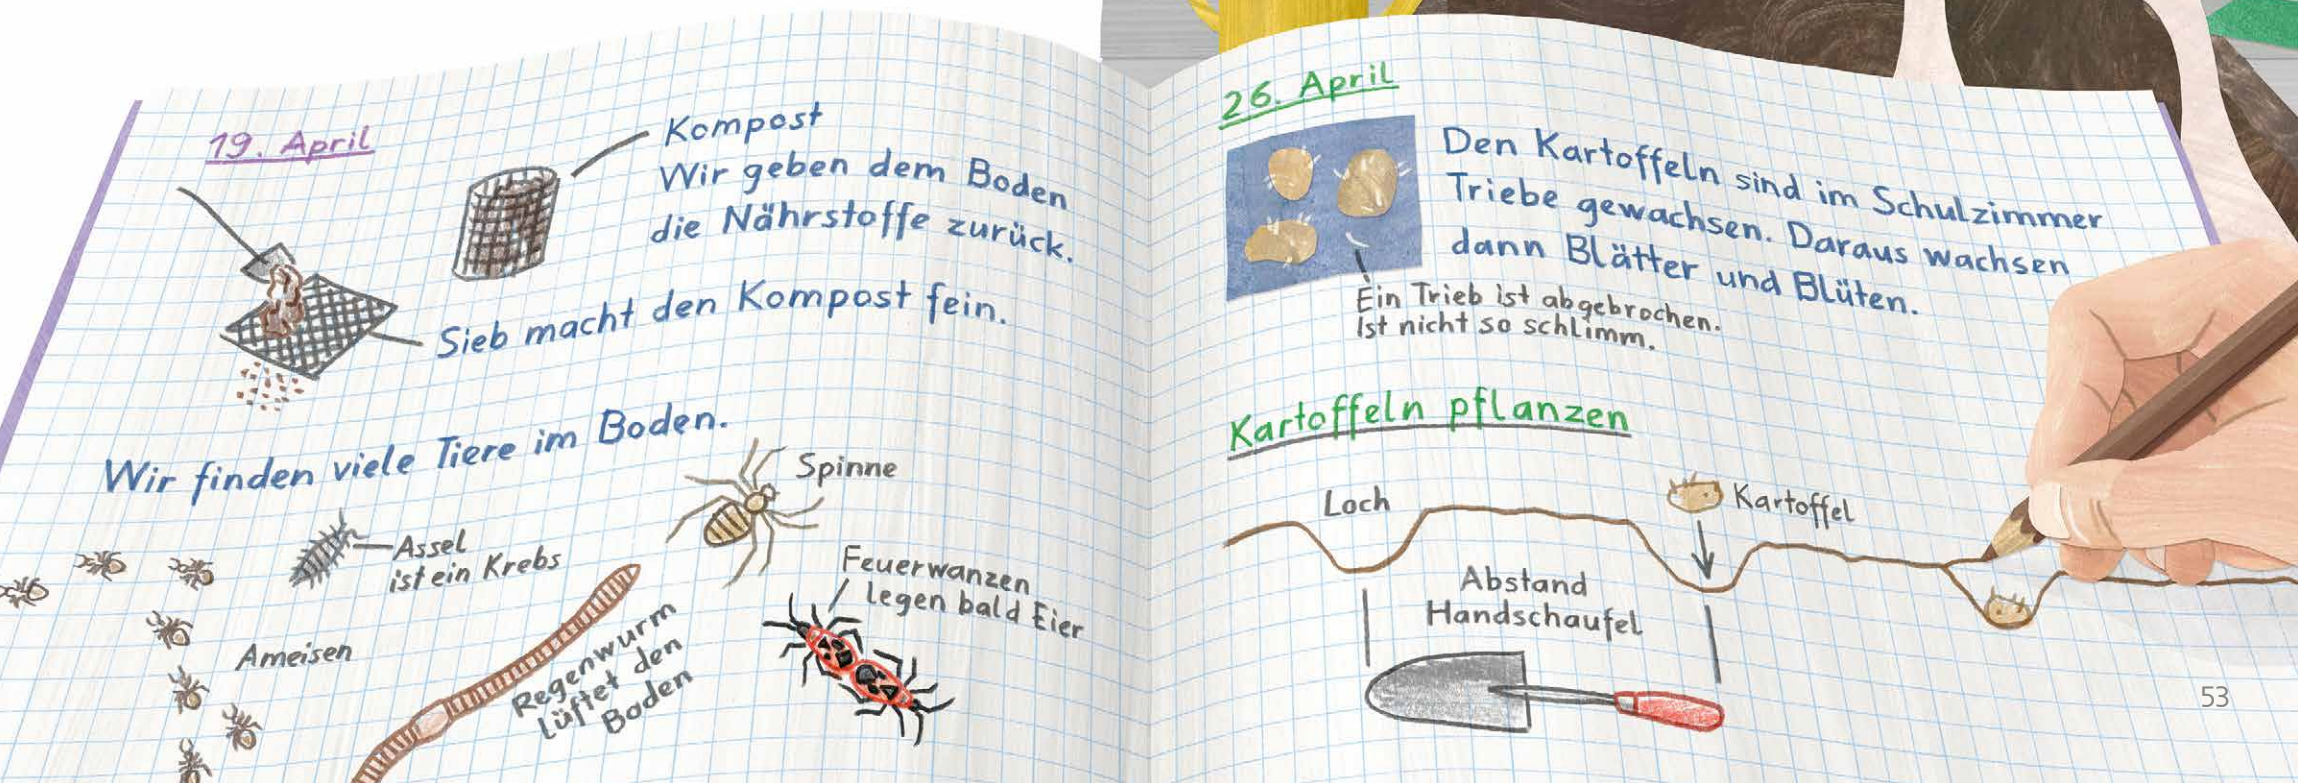 19. April
Kompost
Wir geben dem Boden
die Nährstoffe zurück.
Sieb macht den Kompost fein.
Wir finden viele Tiere im Boden.
Spinne
Assel
ist ein Krebs
Feuerwanzen
legen bald Eier
Ameisen
Regenwurm
lüftet den
Boden
26. April
Den Kartoffeln sind im Schulzimmer
Triebe gewachsen. Daraus wachsen
dann Blätter und Blüten.
Ein Trieb ist abgebrochen.
Ist nicht so schlimm.
Kartoffeln pflanzen
Loch
Kartoffel
Abstand
Handschaufel
53